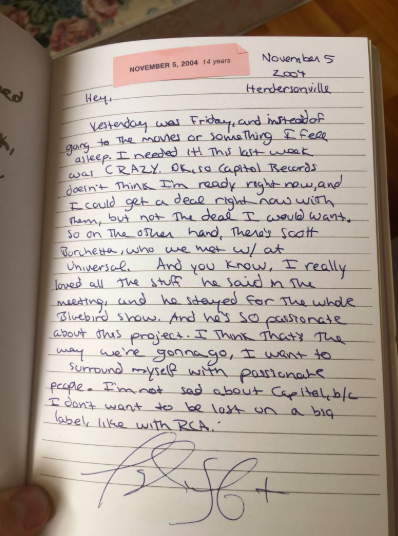 NOVEMBER 5, 2004 14 years
November 5
2004
Hendersonville
Hey,
Yesterday was Friday, and instead of
going to the movies or something I fell
asleep. I needed it! This last week
was CRAZY. OK, so Capitol Records
doesn't think I'm ready right now, and
I could get a deal right now with
them, but not the deal I would want.
So on the other hand, there's Scott
Borchetta, who we met w/ at
Universal. And you know, I really
loved all the stuff he said in the
meeting, and he stayed for the whole
Bluebird show. And he's so passionate
about this project. I think that's the
way we're gonna go, I want to
surround myself with passionate
people. I'm not sad about Capitol, b/c
I don't want to be lost on a big
label, like with RCA.